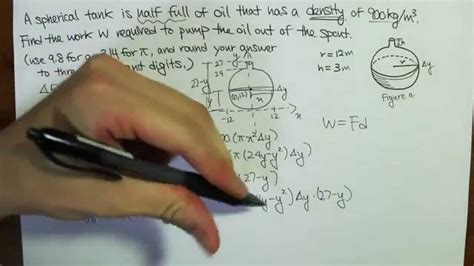 A spherical tank is half full of oil that has a density of 900kg/m³.
Find the work W required to pump the oil out of the spout.
(use 9.8 for g, 3.14 for π, and round your answer
to three significant digits.)
r=12m
h=3m
27-y
27
24
(0,12)
x
Δy
-12
12
x
r
Δy
Figure a
W=Fd
(πx²Δy)
(π(24y-y²)Δy)
(27-y)
y-y²)Δy·(27-y)